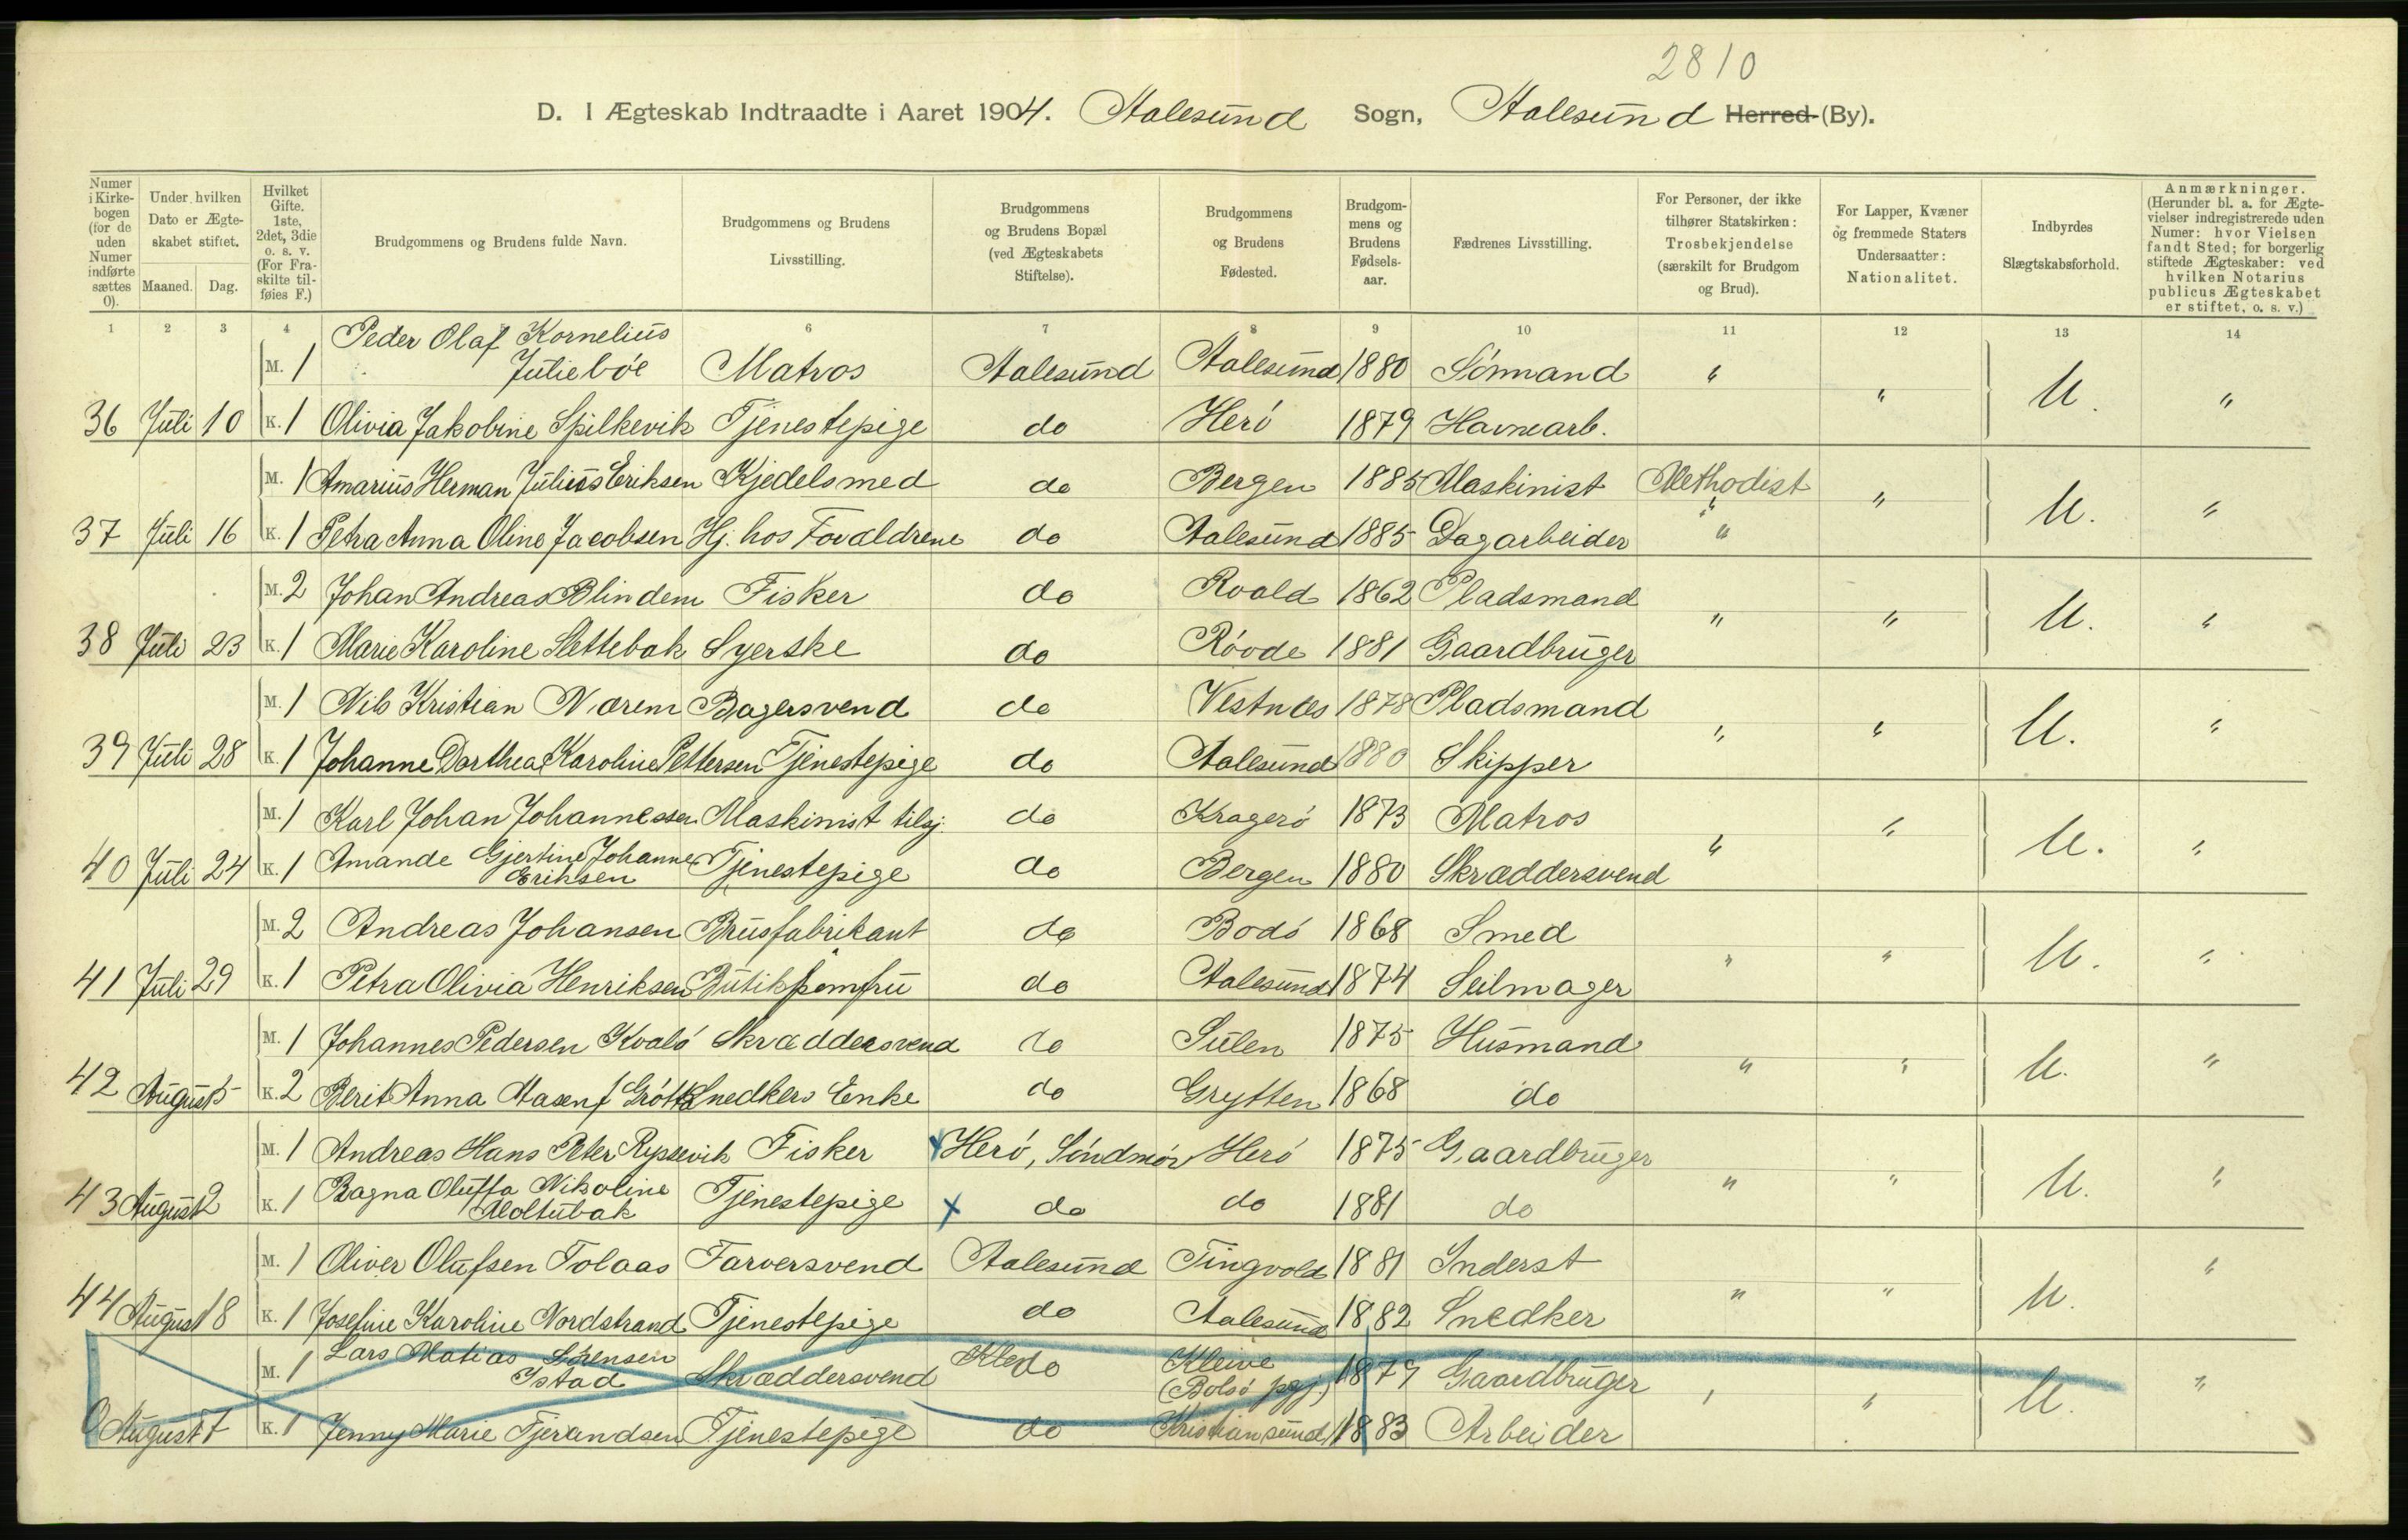 2810
D. I Ægteskab Indtraadte i Aaret 1904. Aalesund Sogn, Aalesund Herred (By).
Numer i Kirkebogen (for de uden Numer indførte sættes 0).
Under hvilken Dato er Ægteskabet stiftet.
Maaned. Dag.
Hvilket Gifte. 1ste, 2det, 3die o. s. v. (For Fraskilte tilføies F.)
Brudgommens og Brudens fulde Navn.
Brudgommens og Brudens Livsstilling.
Brudgommens og Brudens Bopæl (ved Ægteskabets Stiftelse).
Brudgommens og Brudens Fødested.
Brudgommens og Brudens Fødselsaar.
Fædrenes Livsstilling.
For Personer, der ikke tilhører Statskirken: Trosbekjendelse (særskilt for Brudgom og Brud).
For Lapper, Kvæner og fremmede Staters Undersaatter: Nationalitet.
Indbyrdes Slægtskabsforhold.
Anmærkninger. (Herunder bl. a. for Ægtevielser indregistrerede uden Numer: hvor Vielsen fandt Sted; for borgerlig stiftede Ægteskaber: ved hvilken Notarius publicus Ægteskabet er stiftet, o. s. v.)
1 2 3 4 6 7 8 9 10 11 12 13 14
M. 1 Peder Olaf Kornelius Juliebøe Matros Aalesund Aalesund 1880 Sømand " " U. "
36 Juli 10 K. 1 Olivia Jakobine Spilkevik Tjenestepige do Herø 1879 Havnearb.
M. 1 Amarius Herman Julius Eriksen Kjedelsmed do Bergen 1885 Maskinist Methodist " U. "
37 Juli 16 K. 1 Petra Anna Oline Jacobsen Hj. hos Forældrene do Aalesund 1885 Dagarbeider "
M. 2 Johan Andreas Blindem Fisker do Roald 1862 Pladsmand " " U. "
38 Juli 23 K. 1 Marie Karoline Slettebak Syerske do Røvde 1881 Gaardbruger
M. 1 Nils Kristian Nærem Bagersvend do Vestnæs 1878 Pladsmand " " U. "
39 Juli 28 K. 1 Johanne Dorthea Karoline Pettersen Tjenestepige do Aalesund 1880 Skipper
M. 1 Karl Johan Johannessen Maskinist tilsj. do Kragerø 1873 Matros " " U. "
40 Juli 24 K. 1 Amande Gjertine Johanne Eriksen Tjenestepige do Bergen 1880 Skræddersvend
M. 2 Andreas Johansen Brusfabrikant do Bodø 1868 Smed " " U. "
41 Juli 29 K. 1 Petra Olivia Henriksen Butikkjomfru do Aalesund 1874 Seilmager
M. 1 Johannes Pedersen Kvalø Skræddersvend do Sulen 1875 Husmand " " U. "
42 August 5 K. 2 Berit Anna Aasen f Grøtta Snedkers Enke do Grytten 1868 do
M. 1 Andreas Hans Peter Rypsevik Fisker x Herø, Søndmør Herø 1875 Gaardbruger " " U. "
43 August 2 K. 1 Ragna Oluffa Nikoline Moltubak Tjenestepige x do do 1881 do
M. 1 Oliver Olufsen Tolaas Farversvend Aalesund Tingvold 1881 Inderst " " U. "
44 August 8 K. 1 Josefine Karoline Nordstrand Tjenestepige do Aalesund 1882 Snedker
M. 1 Lars Matias Sørensen Istad Skræddersvend do Kleive (Bolsø pgj.) 1879 Gaardbruger " " U. "
0 August 7 K. 1 Jenny Marie Tjerandsen Tjenestepige do Kristiansund 1883 Arbeider